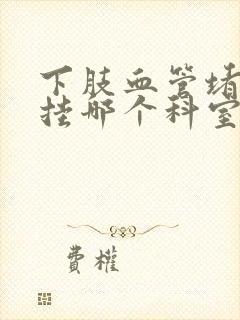 下肢血管堵
挂哪个科室
费权